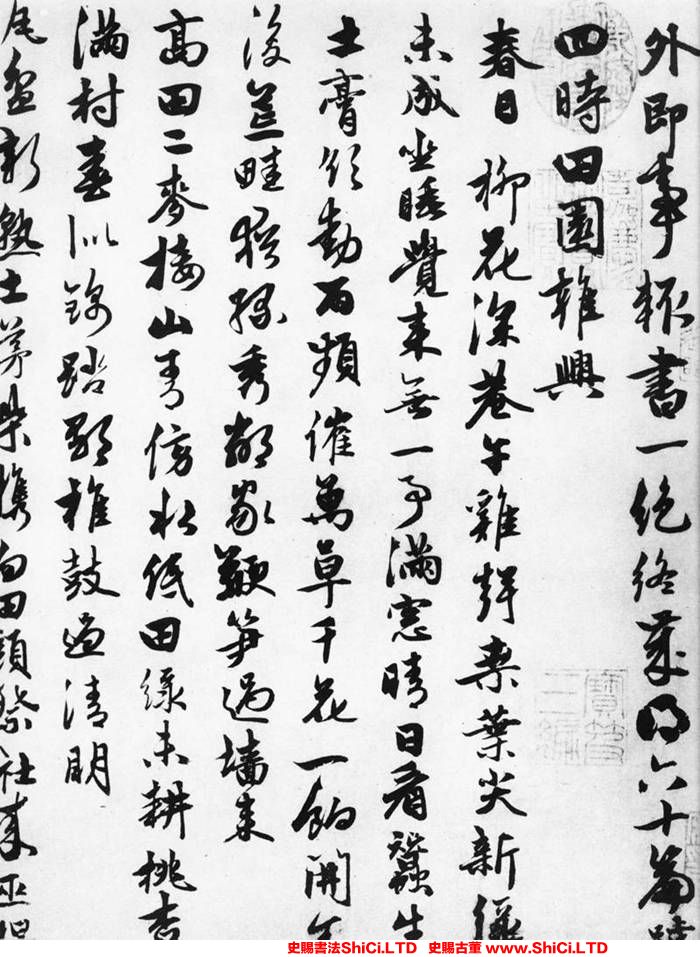 外即事輙書一絕終歲得六十篇
四時田園雜興
春日 柳花深巷午雞聲桑葉尖新綠
未成坐睡覺来無一事滿窓晴日看蠶生
土膏欲動雨頻催萬草千花一餉開舍
後荒畦猶綠秀鄰家鞭笋過墻来
高田二麥接山青傍水低田綠未耕桃杏
滿村春似錦踏歌椎鼓過清明
盆新熟土茅柴携向田頭祭社来巫
寶笈三編
史賜書法ShiCi.LTD 史賜古董 www.ShiCi.LTD